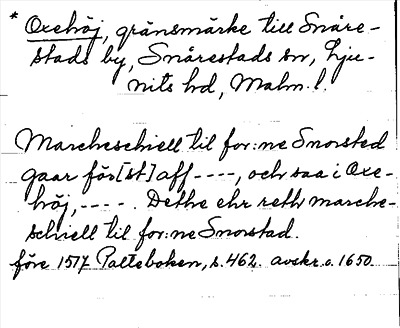 * Oxehöj, gränsmärke till Snåre-
stads by, Snårestads sn, Lju-
nits hd, Malm. l.
Marcheschiell til for:ne Snorsted
gaar förs[st] aff ----, och saa i Oxe-
höj, ----. Dethe ehr reth marche-
schiell til for:ne Snorstad.
före 1517 Palteboken, s. 462. avskr. o. 1650.